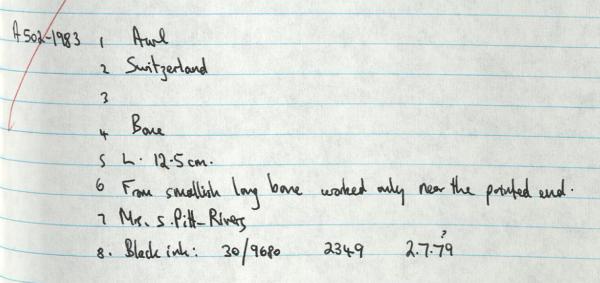 A502-1983 1 Awl
2 Switzerland
3
4 Bone
5 L. 12.5 cm.
6 From smallish long bone worked only near the pointed end.
7 Mrs. S. Pitt-Rivers
8. Black ink: 30/9680 2349 2.7.79?